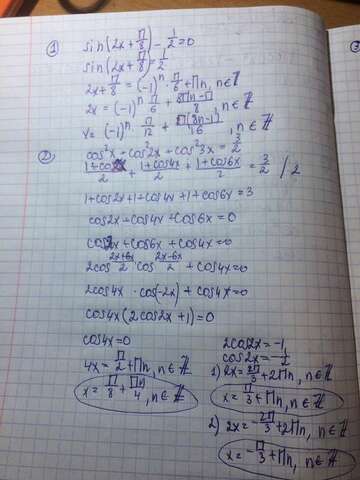 1) sin(2x + П/8) - 1/2 = 0
sin(2x + П/8) = 1/2
2x + П/8 = (-1)^n · П/6 + Пn, n∈Z
2x = (-1)^n П/6 + (8Пn - П)/8, n∈Z
x = (-1)^n · П/12 + П(8n-1)/16, n∈Z
2) cos²x + cos²2x + cos²3x = 3/2
(1+cos2x)/2 + (1+cos4x)/2 + (1+cos6x)/2 = 3/2 /2
1+cos2x+1+cos4x+1+cos6x=3
cos2x+cos4x+cos6x=0
cos2x+cos6x+cos4x=0
2cos (2x+6x)/2 cos (2x-6x)/2 + cos4x=0
2cos4x · cos(-2x) + cos4x=0
cos4x(2cos2x+1)=0
cos4x=0
4x = П/2 + Пn, n∈Z
x = П/8 + Пn/4, n∈Z
2cos2x=-1
cos2x=-1/2
1) 2x = 2П/3 + 2Пn, n∈Z
x = П/3 + Пn, n∈Z
2) 2x = -2П/3 + 2Пn, n∈Z
x = -П/3 + Пn, n∈Z
3